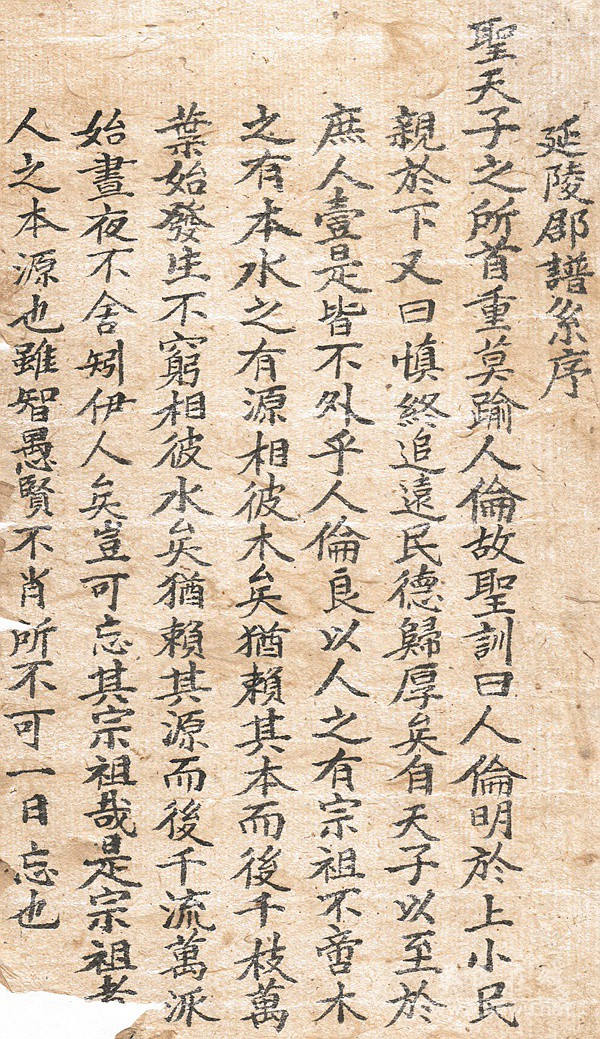 延陵郡譜系序
聖天子之所首重莫踰人倫故聖訓曰人倫明於上小民
親於下又曰慎終追遠民德歸厚矣自天子以至於
庶人壹是皆不外乎人倫良以人之有宗祖不啻木
之有本水之有源相彼木矣猶賴其本而後千枝萬
葉始發生不窮相彼水矣猶賴其源而後千流萬派
始晝夜不舍矧伊人矣豈可忘其宗祖哉是宗祖者
人之本源也雖智愚賢不肖所不可一日忘也